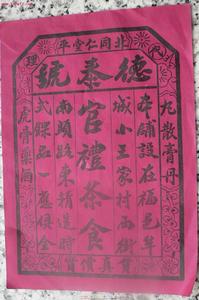 北同仁堂平
代理
德泰號
丸散膏丹
本鋪設在福邑羊
城小王家村西街
官禮茶食
南頭路東精造時
式餜品一應俱全
虎骨藥酒
貨真價實